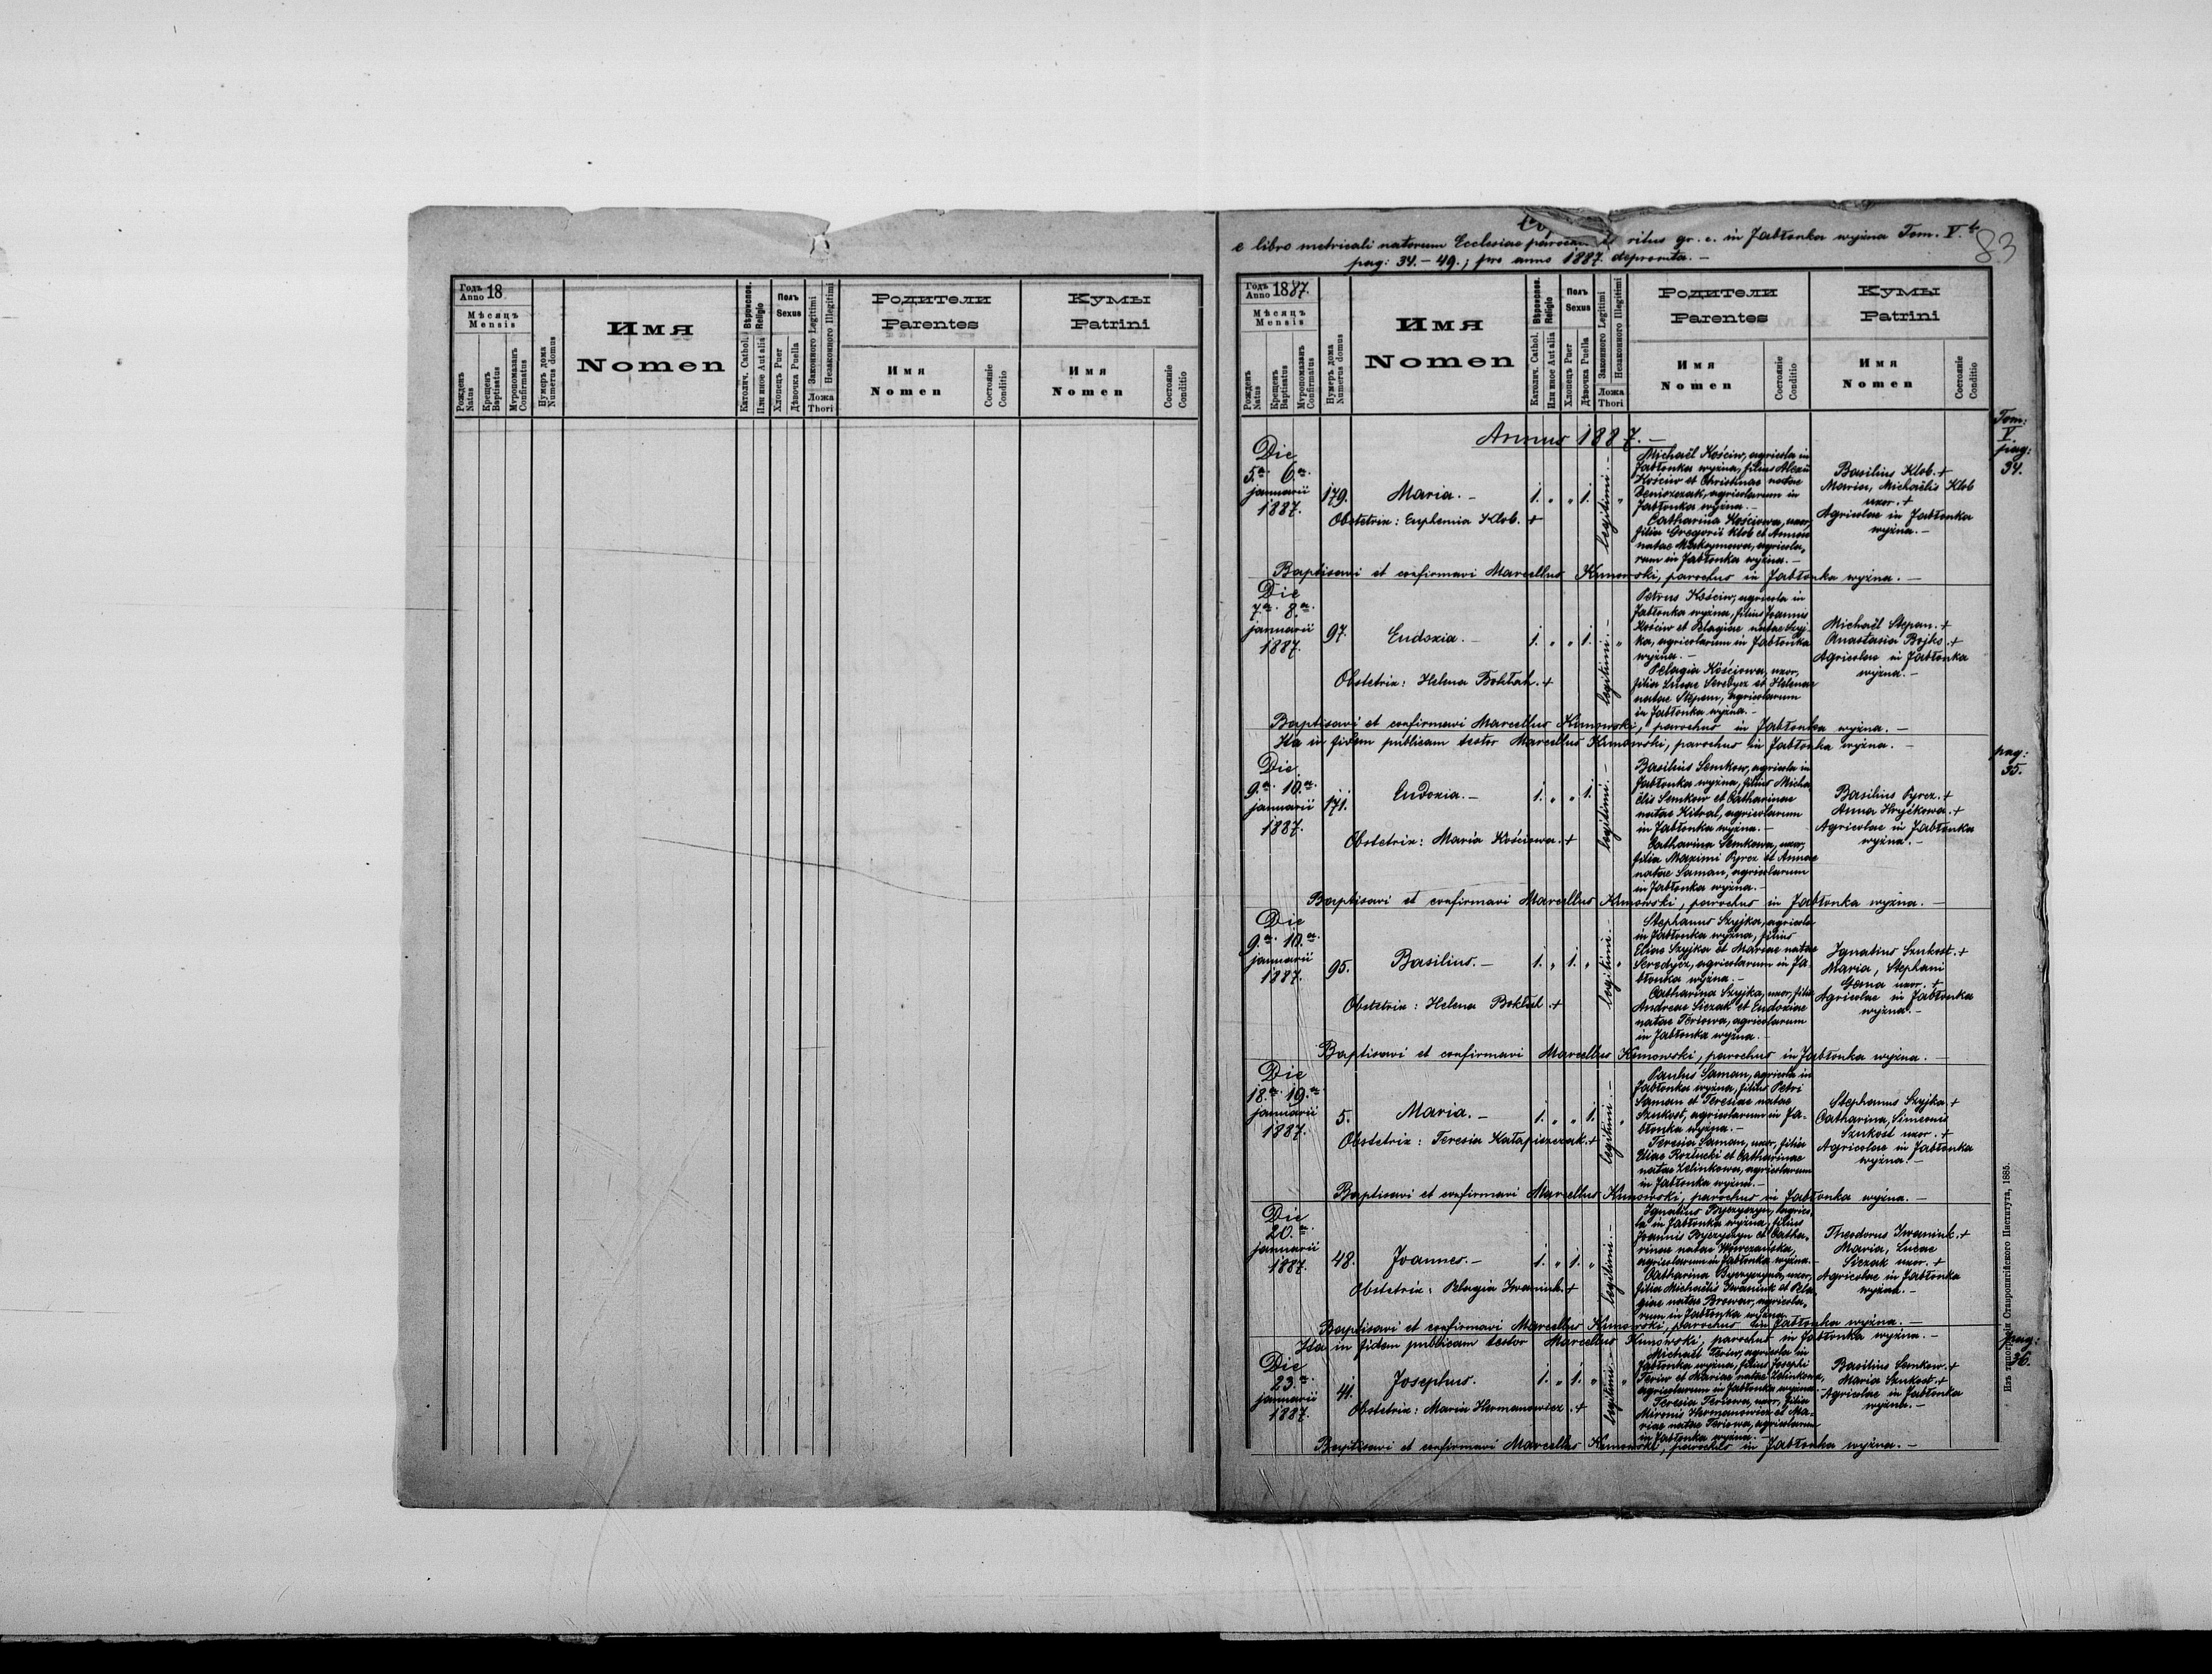 Годъ Anno 18
Мѣсяць
Mensis
Рожденъ Natus
Крещенъ Baptisatus
Мѵропомазанъ Confirmatus
Нумеръ дома Numerus domus
Имя
Nomen
Вѣроиспов. Religio
Католич. Cathol.
Или иное Aut alia
Полъ
Sexus
Хлопецъ Puer
Дѣвочка Puella
Законного Legitimi
Незаконного Illegitimi
Ложа
Thori
Родители
Parentes
Имя
Nomen
Состоянiе
Conditio
Кумы
Patrini
Имя
Nomen
Состоянiе
Conditio
e libro metricali natorum Ecclesiae ritus gr. c. in Jabłonka wyżna Tom. V.
83
pag: 34. - 49.; pro anno 1887 depromta. -
Годъ Anno 1887.
Мѣсяць
Mensis
Рожденъ Natus
Крещенъ Baptisatus
Мѵропомазанъ Confirmatus
Нумеръ дома Numerus domus
Имя
Nomen
Вѣроиспов. Religio
Католич. Cathol.
Или иное Aut alia
Полъ
Sexus
Хлопецъ Puer
Дѣвочка Puella
Законного Legitimi
Незаконного Illegitimi
Ложа
Thori
Родители
Parentes
Имя
Nomen
Состоянiе
Conditio
Кумы
Patrini
Имя
Nomen
Состоянiе
Conditio
Tom:
V.
pag:
34.
Annus 1887. -
Die
5.a 6.a
januarii
1887.
179.
Maria. -
1. " " 1. "
legitimi. -
Obstetrix: Euphemia Klob. +
Michaël Kościw, agricola in
Jabłonka wyżna, filius Alexii
Kościw et Christinae natae
Deniszczak, agricolarum in
Jabłonka wyżna. -
Catharina Kościowa, uxor,
filia Gregorii Klob et Annae
natae Maksymowa, agricola,
rum in Jabłonka wyżna. -
Basilius Klob. +
Maria, Michaëlis Klob
uxor. +
Agricolae in Jabłonka
wyżna. -
Baptisavi et confirmavi Marcellus Kunowski, parochus in Jabłonka wyżna. -
Die
7.a 8.a
januarii
1887.
97.
Eudoxia. -
1. " " 1. "
legitimi. -
Obstetrix: Helena Bokłah. +
Petrus Kościw, agricola in
Jabłonka wyżna, filius Joannis
Kościw et Pelagiae natae Szyj
ka, agricolarum in Jabłonka
wyżna. -
Pelagia Kościowa, uxor,
filia Lucae Seredycz et Helenae
natae Stepan, agricolarum
in Jabłonka wyżna. -
Michaël Stepan. +
Anastasia Bojko. +
Agricolae in Jabłonka
wyżna. -
Baptisavi et confirmavi Marcellus Kunowski, parochus in Jabłonka wyżna. -
Ita in fidem publicam testor Marcellus Kunowski, parochus in Jabłonka wyżna. -
pag:
35.
Die
9.a 10.a
januarii
1887.
171.
Eudoxia. -
1. " " 1.
legitimi. -
Obstetrix: Maria Kościowa. +
Basilius Semkow, agricola in
Jabłonka wyżna, filius Micha
ëlis Semkow et Catharinae
natae Kitral, agricolarum
in Jabłonka wyżna. -
Catharina Semkowa, uxor,
filia Maximi Pyrcz et Annae
natae Saman, agricolarum
in Jabłonka wyżna. -
Basilius Pyrcz. +
Anna Hryćkowa. +
Agricolae in Jabłonka
wyżna. -
Baptisavi et confirmavi Marcellus Kunowski, parochus in Jabłonka wyżna. -
Die
9.a 10.a
januarii
1887.
95.
Basilius. -
1. " 1. " "
legitimi. -
Obstetrix: Helena Bokłah. +
Stephanus Szyjka, agricola
in Jabłonka wyżna, filius
Eliae Szyjka et Mariae natae
Seredycz, agricolarum in Ja,
błonka wyżna. -
Catharina Szyjka, uxor, filia
Andreae Siczak et Eudoxiae
natae Feriowa, agricolarum
in Jabłonka wyżna. -
Ignatius Sznkost. +
Maria, Stephani
Goma uxor. +
Agricolae in Jabłonka
wyżna. -
Baptisavi et confirmavi Marcellus Kunowski, parochus in Jabłonka wyżna. -
Die
18.a 19.a
januarii
1887.
5.
Maria. -
1. " " 1. "
legitimi. -
Obstetrix: Teresia Katapiszczak. +
Paulus Saman, agricola in
Jabłonka wyżna, filius Petri
Saman et Teresiae natae
Sznkost, agricolarum in Ja-
błonka wyżna. -
Teresia Saman, uxor, filia
Eliae Rozłucki et Catharinae
natae Zelinkowa, agricolarum
in Jabłonka wyżna. -
Stephanus Szyjka. +
Catharina, Simeonis
Sznkost uxor. +
Agricolae in Jabłonka
wyżna. -
Baptisavi et confirmavi Marcellus Kunowski, parochus in Jabłonka wyżna. -
Die
20.a
januarii
1887.
48.
Joannes. -
1. " 1. "
legitimi. -
Obstetrix: Pelagia Iwaniuk. +
Ignatius Byczyszyn, agrico,
la in Jabłonka wyżna, filius
Joannis Byczyszyn et Catha,
rinae natae
agricolarum in Jabłonka wyżna. -
Catharina Byczyszyn, uxor,
filia Michaëlis Iwaniuk et Pela,
giae natae Browar, agricola,
rum in Jabłonka wyżna.
Theodorus Iwaniuk. +
Maria, Lucae
Siczak uxor. +
Agricolae in Jabłonka
wyżna. -
Baptisavi et confirmavi Marcellus Kunowski, parochus in Jabłonka wyżna. -
Ita in fidem publicam testor Marcellus Kunowski, parochus in Jabłonka wyżna. -
pag:
36.
Die
23.a
januarii
1887.
41.
Josephus.
1. " 1. " "
legitimi. -
Obstetrix: Maria Hermanowicz. +
Michaël Feriw, agricola in
Jabłonka wyżna, filius Josephi
Feriw et Mariae natae Zelinkowa,
agricolarum in Jabłonka wyżna.
Teresia Feriowa, uxor, filia
Mironis Hermanowicz et Ma-
riae natae Feriowa, agricolarum
in Jabłonka wyżna. -
Basilius Semkow. +
Maria Sznkost. +
Agricolae in Jabłonka
wyżna. -
Baptisavi et confirmavi Marcellus Kunowski, parochus in Jabłonka wyżna. -
Изъ типографiи Ставропигiйского Института, 1885.